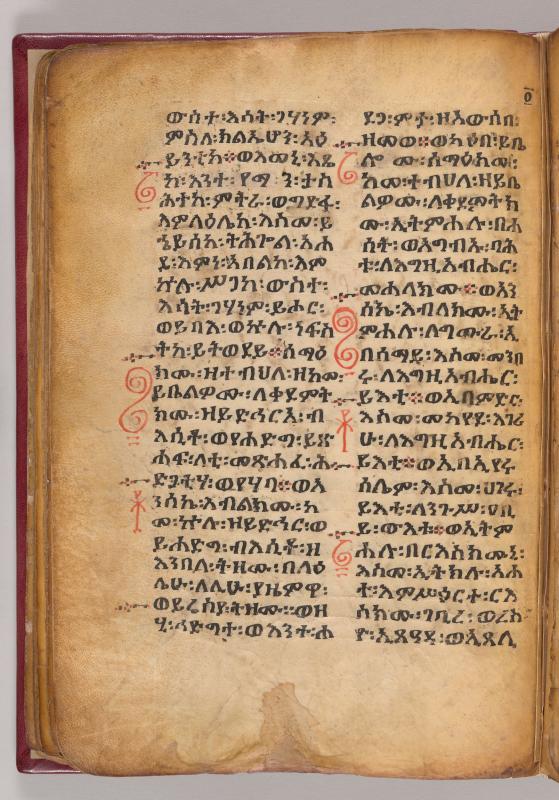 ውስተ፡እሳት፡ገሃነም፡
ምስለ፡ክልኤሆን፡አዕ
ይንቲከ፡፡ወእመኒ፡እዴ
ከ፡እንተ፡የማ ን፡ታስ
ሕተከ፡ምትራ፡ወግድፋ፡
እምላዕሌከ፡እስመ፡ይ
ኄይሰከ፡ትሕጐል፡አሐ
ደ፡እምነ፡አባልከ፡እም
ኵሉ፡ሥጋከ፡ውስተ፡
እሳት፡ገሃነም፡ይሖር፡
ወይባእ፡ወኵሉ፡ነፍስ
ትከ፡ይትወደይ፡፡ሰማዕ
ክሙ፡ዘተብህለ፡ዘከመ፡
ይቤልዎሙ፡ለቀደምት
ክሙ፡ዘይድኅርሂ፡ብ
እሲቶ፡ወየሐድግ፡ይጽ
ሐፍ፡ላቲ፡መጽሐፈ፡ሕ
ድጋቲሃ፡ወየሃባ፡፡ወአ
ንሰኬ፡እብለክሙ፡ከ
መ፡ኵሉ፡ዘይድኅር፡ወ
ይሐድግ፡ብእሲቶ፡ዘ
እንበለ፡ትዘሙ፡በላዕ
ሌሁ፡ለሊሁ፡ያዜምዋ፡
ወይሬስያ፡ትዘሙ፡፡ወዘ
ሂ፡ኅድግተ፡ወእንተ፡ሐ
ደጋ፡ምታ፡ዘአውሰበ፡
ዘመወ፡፡ወካዕበ፡ይቤ
ሎ ሙ፡ሰማዕክሙ፡
ከመ፡ተብህለ፡ዘይቤ
ልዎሙ፡ለቀደምትክ
ሙ፡ኢትምሐሉ፡በሐ
ሰት፡ወአግብኡ፡ባሕ
ቱ፡ለእግዚአብሔር፡
መሐላክሙ፡፡ወአን
ሰኬ፡እብለክሙ፡ኢት
ምሐሉ፡ለግሙራ፡ኢ
በሰማይ፡እስመ፡መንበ
ሩ፡ለእግዚአብሔር፡
ይእቲ፡፡ወኢበምድር፡
እስመ፡መከየደ፡እገሪ
ሁ፡ለእግዚአብሔር፡
ይእቲ፡፡ወኢበኢየሩ
ሳሌም፡እስመ፡ሀገሩ፡
ይእቲ፡ለንጉሥ፡ዐቢ
ይ፡ውእቱ፡፡ወኢትም
ሐሉ፡በርእስክሙኒ፡
እስመ፡ኢትክሉ፡አሐ
ተ፡እምሥዕርተ፡ርእ
ስክሙ፡ገቢረ፡ወረስ
ዮ፡ኢጸዓዳ፡ወኢጸሊ